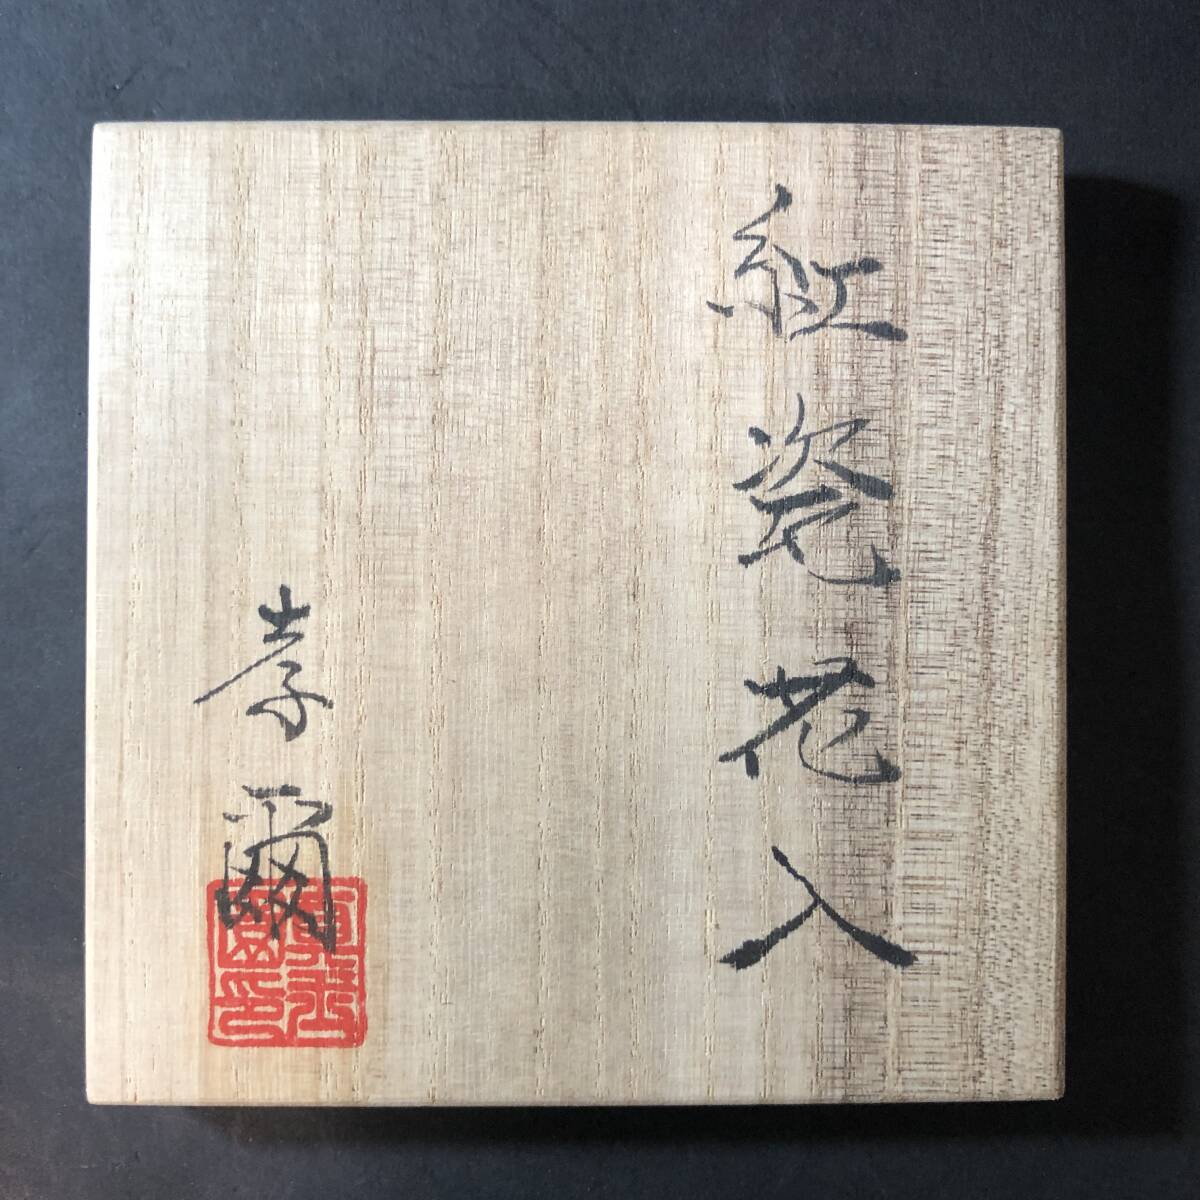 紅瓷花入
孝爾